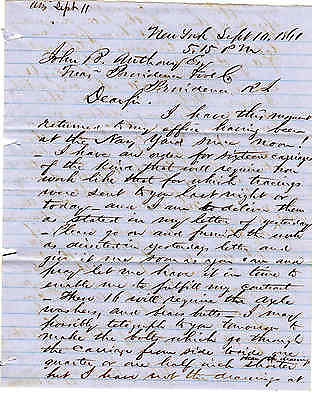 New York Sept 10, 1861
5.15 P M
John B. Anthony Esq
Treas Providence Tool Co
Providence R I
Dear Sir
I have this moment
returned to my office having been
at the Navy Yard since noon!
I have an order for sixteen carriages
of the kind that will require iron
work like that for which tracings
were sent to you last night or
today and I am to deliver them
as stated in my letter of yesterday
Please go on and furnish the work
as directed in yesterdays letter and
give it me soon as you can and
pray let me have it in time to
enable me to fulfill my contract
These 16 will require the axle
washers, and brass butts I may
possibly telegraph to you tomorrow to
make the bolts which go through
the carriage from side to side one
than the drawing
quarter or one half inch shorter
but I have not the drawing at